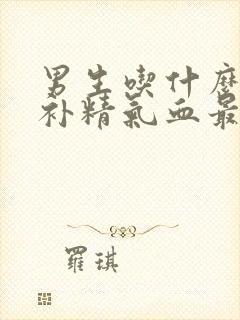 男生喫什麼
补精氣血最
羅琪